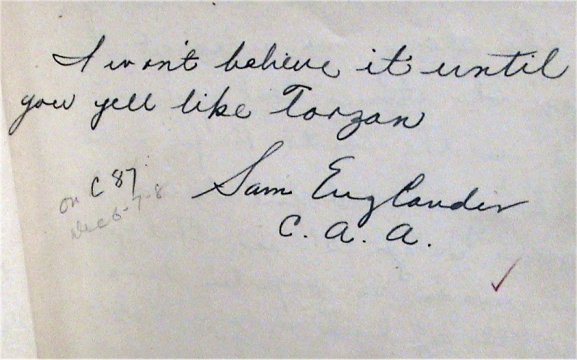 I won't believe it until
you yell like Tarzan
Sam Englander
C. A. A.
on C 87
Dec 6-7-8